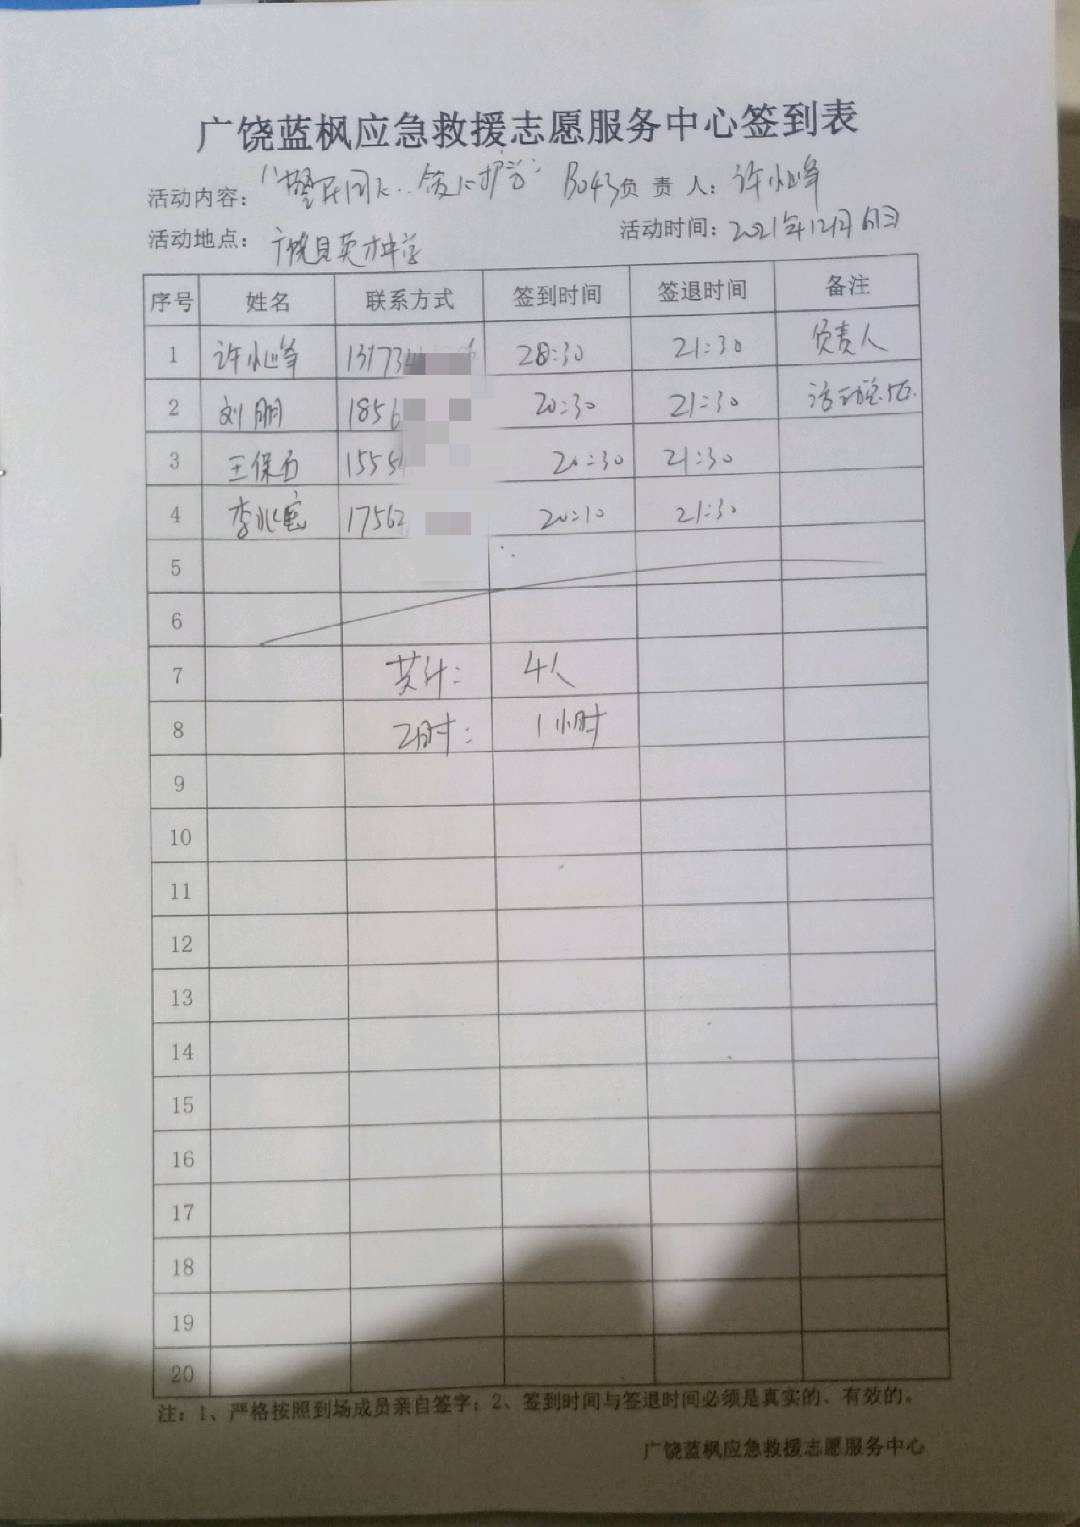 广饶蓝枫应急救援志愿服务中心签到表
活动内容：“警民同心 护学” B043 负责人：许
活动地点：广饶县英才中学 活动时间：2021年12月
序号 姓名 联系方式 签到时间 签退时间 备注
1 许 峰 13173 28:30 21:30 负责人
2 刘朋 1856 20:30 21:30 活动
3 王保 1555 20:30 21:30
4 李 1756 20:10 21:30
5
6
7 共计： 4人
8 工时： 1小时
9
10
11
12
13
14
15
16
17
18
19
20
注：1、严格按照到场成员亲自签字；2、签到时间与签退时间必须是真实的、有效的。
广饶蓝枫应急救援志愿服务中心